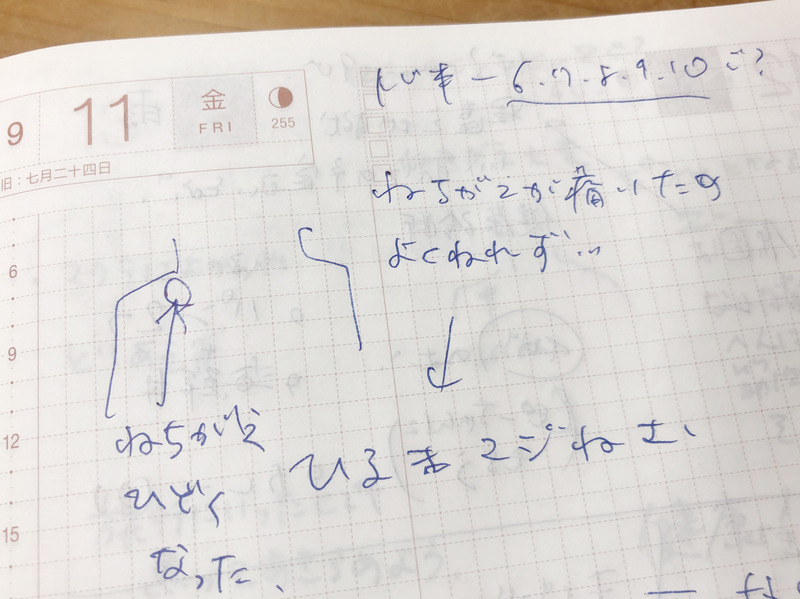 9
11
金
FRI
255
旧:七月二十四日
6.7.8.9.10
ねちがえが痛いため
よくねれず…
6
9
12
15
ねちがえ
ひどく
なった、
ひるま2じ